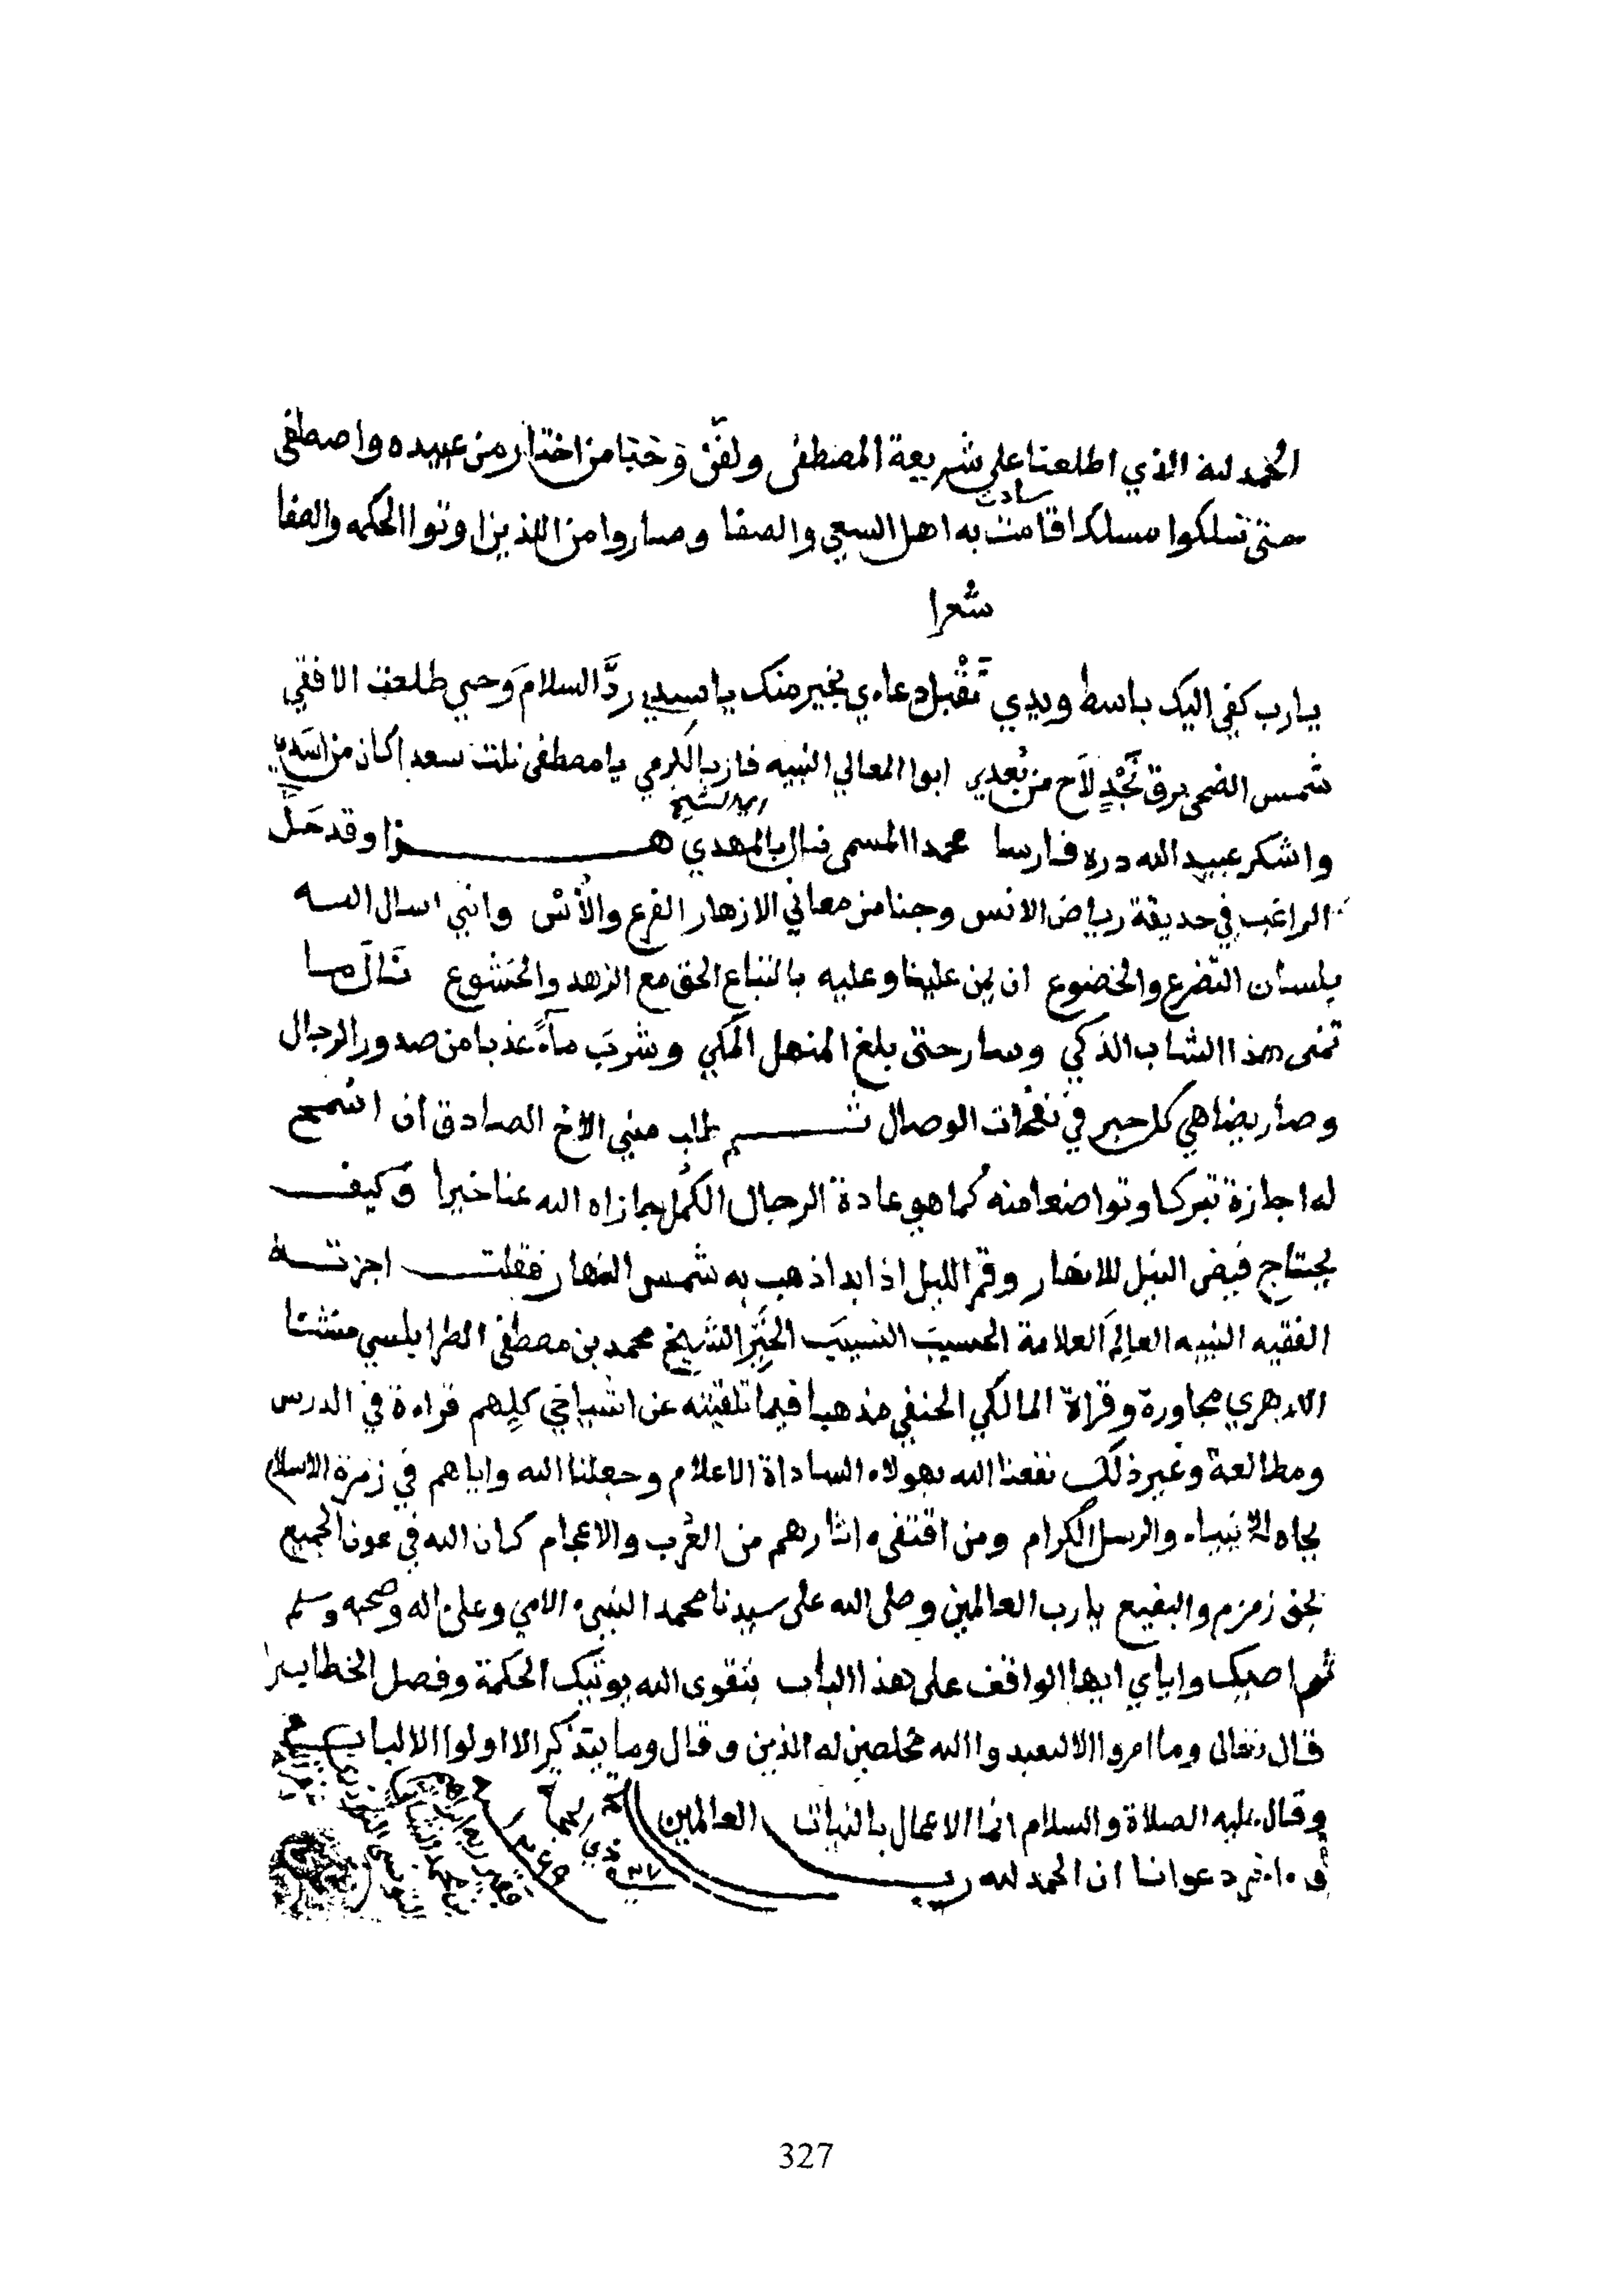 الحمد لله الذي اطلعنا على شريعة المصطفى ولقن وحبا من اختار من عبيده واصطفى
حتى تسلكوا مسلكا قامت به سادت اهل السعي والصفا وصاروا من الذين اوتوا الحكمه والصفا
شعرا
يارب كفي اليك باسط ويدي تَقْبل دعاءي بخير منك يا سيدي ردَّ السلامَ وحيي طلعت الافقي
شمس الضحى برق نَجْدٍ لاَح من بُعدي ابوا المعالي النبيه فاز بالكرمي يا مصطفى نلت سعدا كان من اسَدي
واشكر عبيد الله دره فارسا محمدا المسمى نال بالمهدي هذا وقد حَلَّ
الراغب في حديقة رياض الانس وجنا من معاني الازهار الفرع والأُسْ وانني اسال الله
بلسان التضرع والخضوع ان يمن علينا وعليه باتباع الحق مع الزهد والخشوع نَالَ ما
تمنى هذا الشاب الذكي وسار حتى بلغ المنهل المَكي وشربَ ماءً عذبا من صدور الرجال
وصار يضاهي كل حبر في نفحات الوصال ثم طلب مني الاخ الصادق ان اسمح
له اجازة تبركا وتواضعا منه كما هو عادة الرجال الكُمل جازاه الله عنا خيرا وكيف
يحتاج فيض النيل للانهار وقمر الليل اذا بدا ذهب به شمس النهار فقلت اجزته
الفقيه النبيه العالِمَ العلامة الحسيبَ النسيبَ الخَيِّر الشيخ محمد بن مصطفى الطرابلسي منشئا
الازهري مجاورة وقراة المالكي الحنفي مذهبا فيما تلقيته عن اشياخي كلِهم قراءة في الدرس
ومطالعة وغير ذلك نفعنا الله بهولاء الساداة الاعلام وجعلنا الله واياهم في زمرة الاسلام
بجاه الانبياء والرسل الكرام ومن اقتفى اثارهم من العُرب والاعجام كان الله في عون الجميع
بحق زمزم والبقيع يارب العالمين وصلى الله على سيدنا محمد النبيء الامي وعلى اله وصحبه وسلم
ثم اصيك واياي ايها الواقف على هذا الباب بتقوى الله يوتيك الحكمة وفصل الخطاب
قال تعالى وما امروا الا ليعبدوا الله مخلصين له الدين وقال وما يتذكر الا اولوا الالباب
وقال عليه الصلاة والسلام انما الاعمال بالنيات
وءاخر دعوانا ان الحمد لله رب العالمين